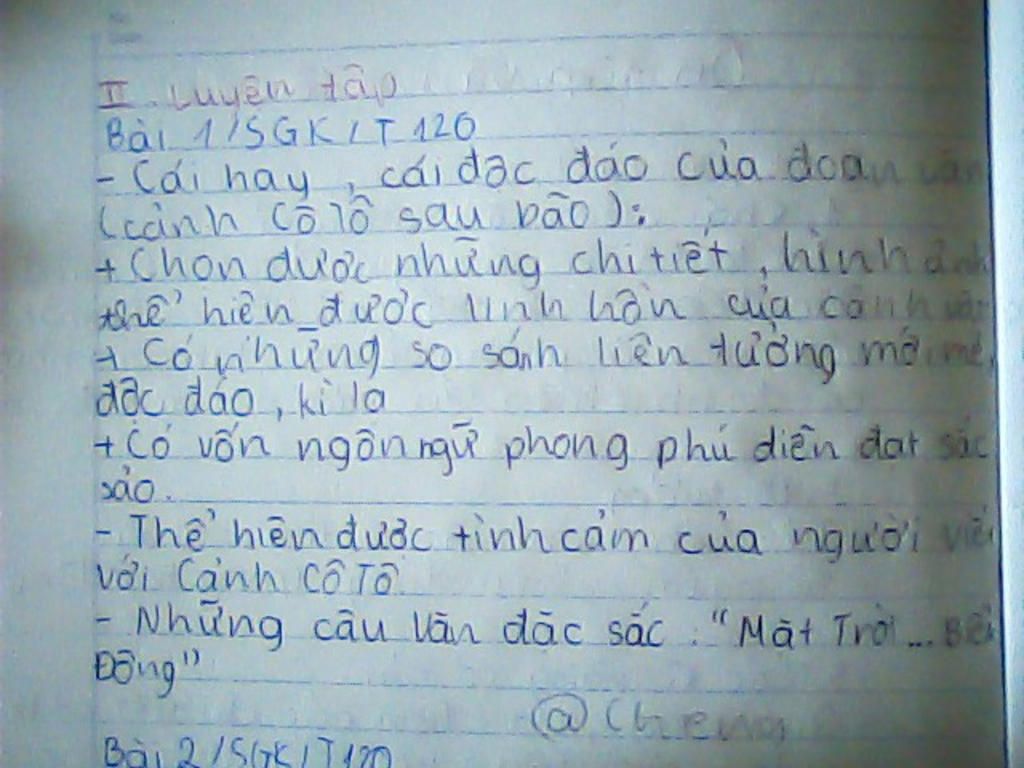 II. Luyện tập
Bài 1/SGK/T120
- Cái hay, cái độc đáo của đoạn văn
(cảnh Cô Tô sau bão):
+ Chọn được những chi tiết, hình ảnh
thể hiện được linh hồn của cảnh vật
+ Có những so sánh liên tưởng mới mẻ,
độc đáo, kì lạ
+ Có vốn ngôn ngữ phong phú diễn đạt sắc
sảo.
- Thể hiện được tình cảm của người viết
với cảnh Cô Tô
- Những câu văn đặc sắc: "Mặt Trời... Biển
Đông"
Bài 2/SGK/T120